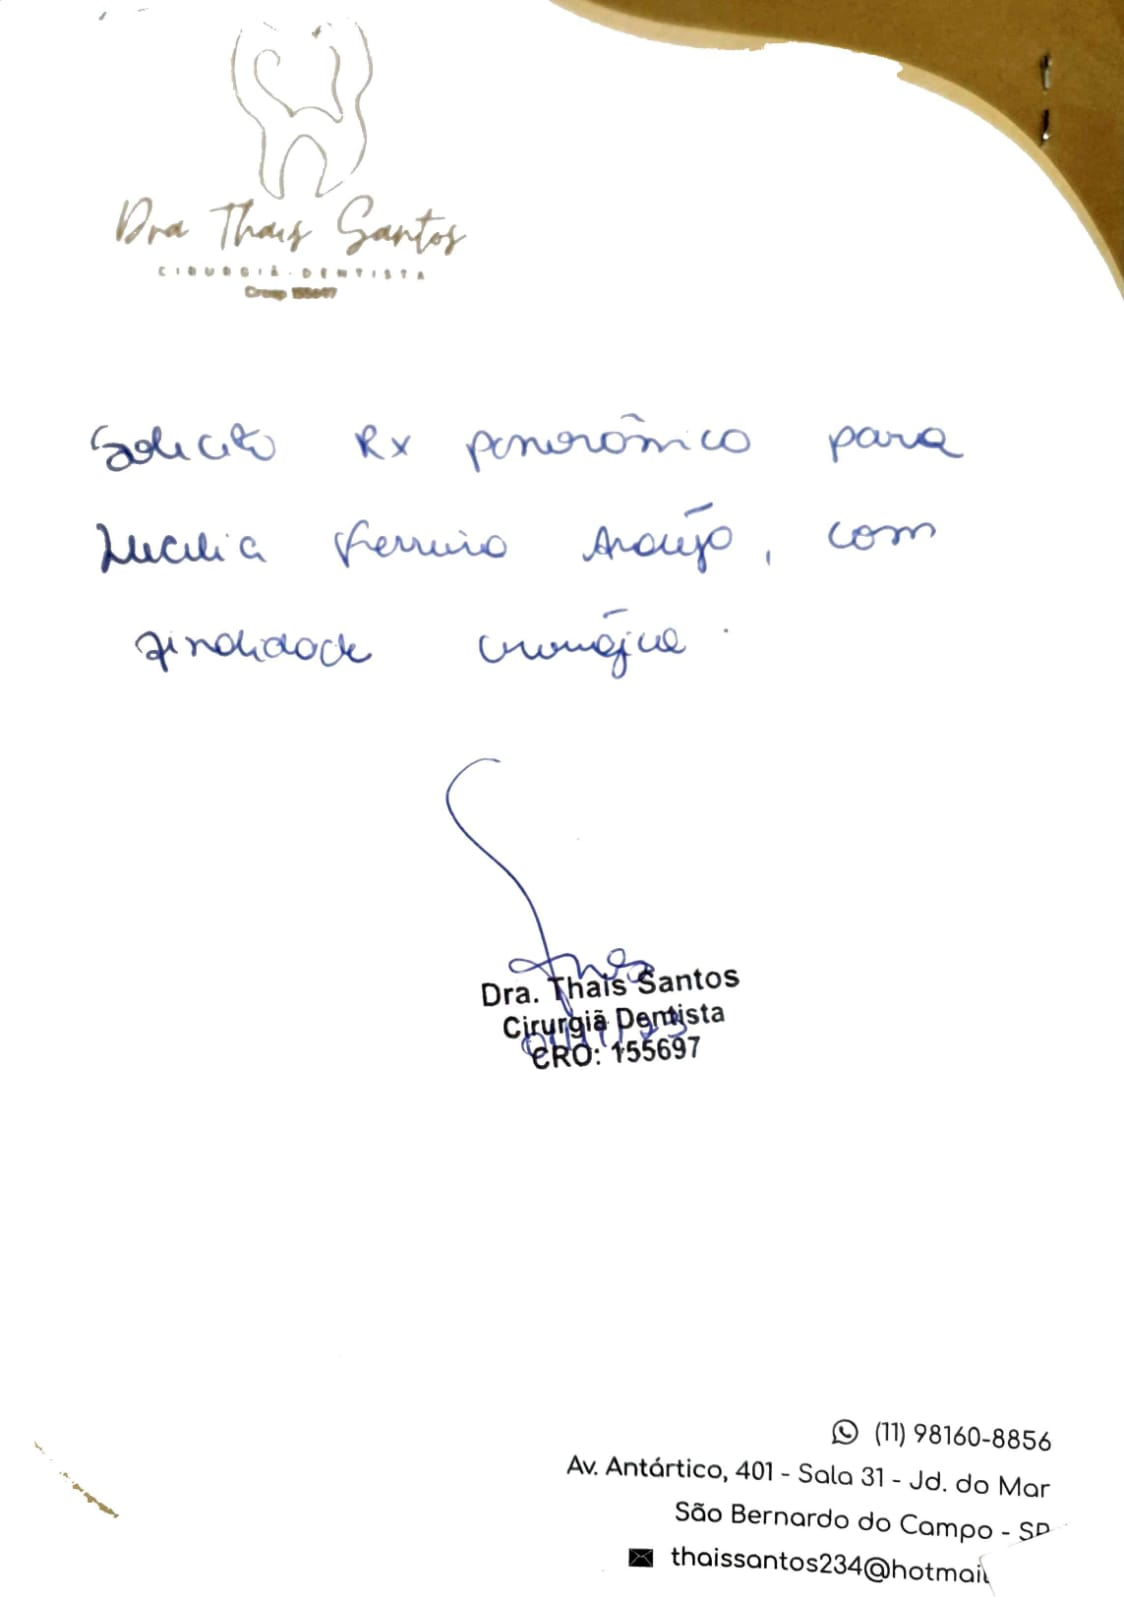 Dra Thais Santos
CIRURGIÃ-DENTISTA
Crosp 155697
Solicito Rx panorâmico para
Lucilia Ferreira Araújo, com
finalidade cirúrgica.
Dra. Thais Santos
Cirurgiã Dentista
CRO: 155697
(11) 98160-8856
Av. Antártico, 401 - Sala 31 - Jd. do Mar
São Bernardo do Campo - SP
thaissantos234@hotmail